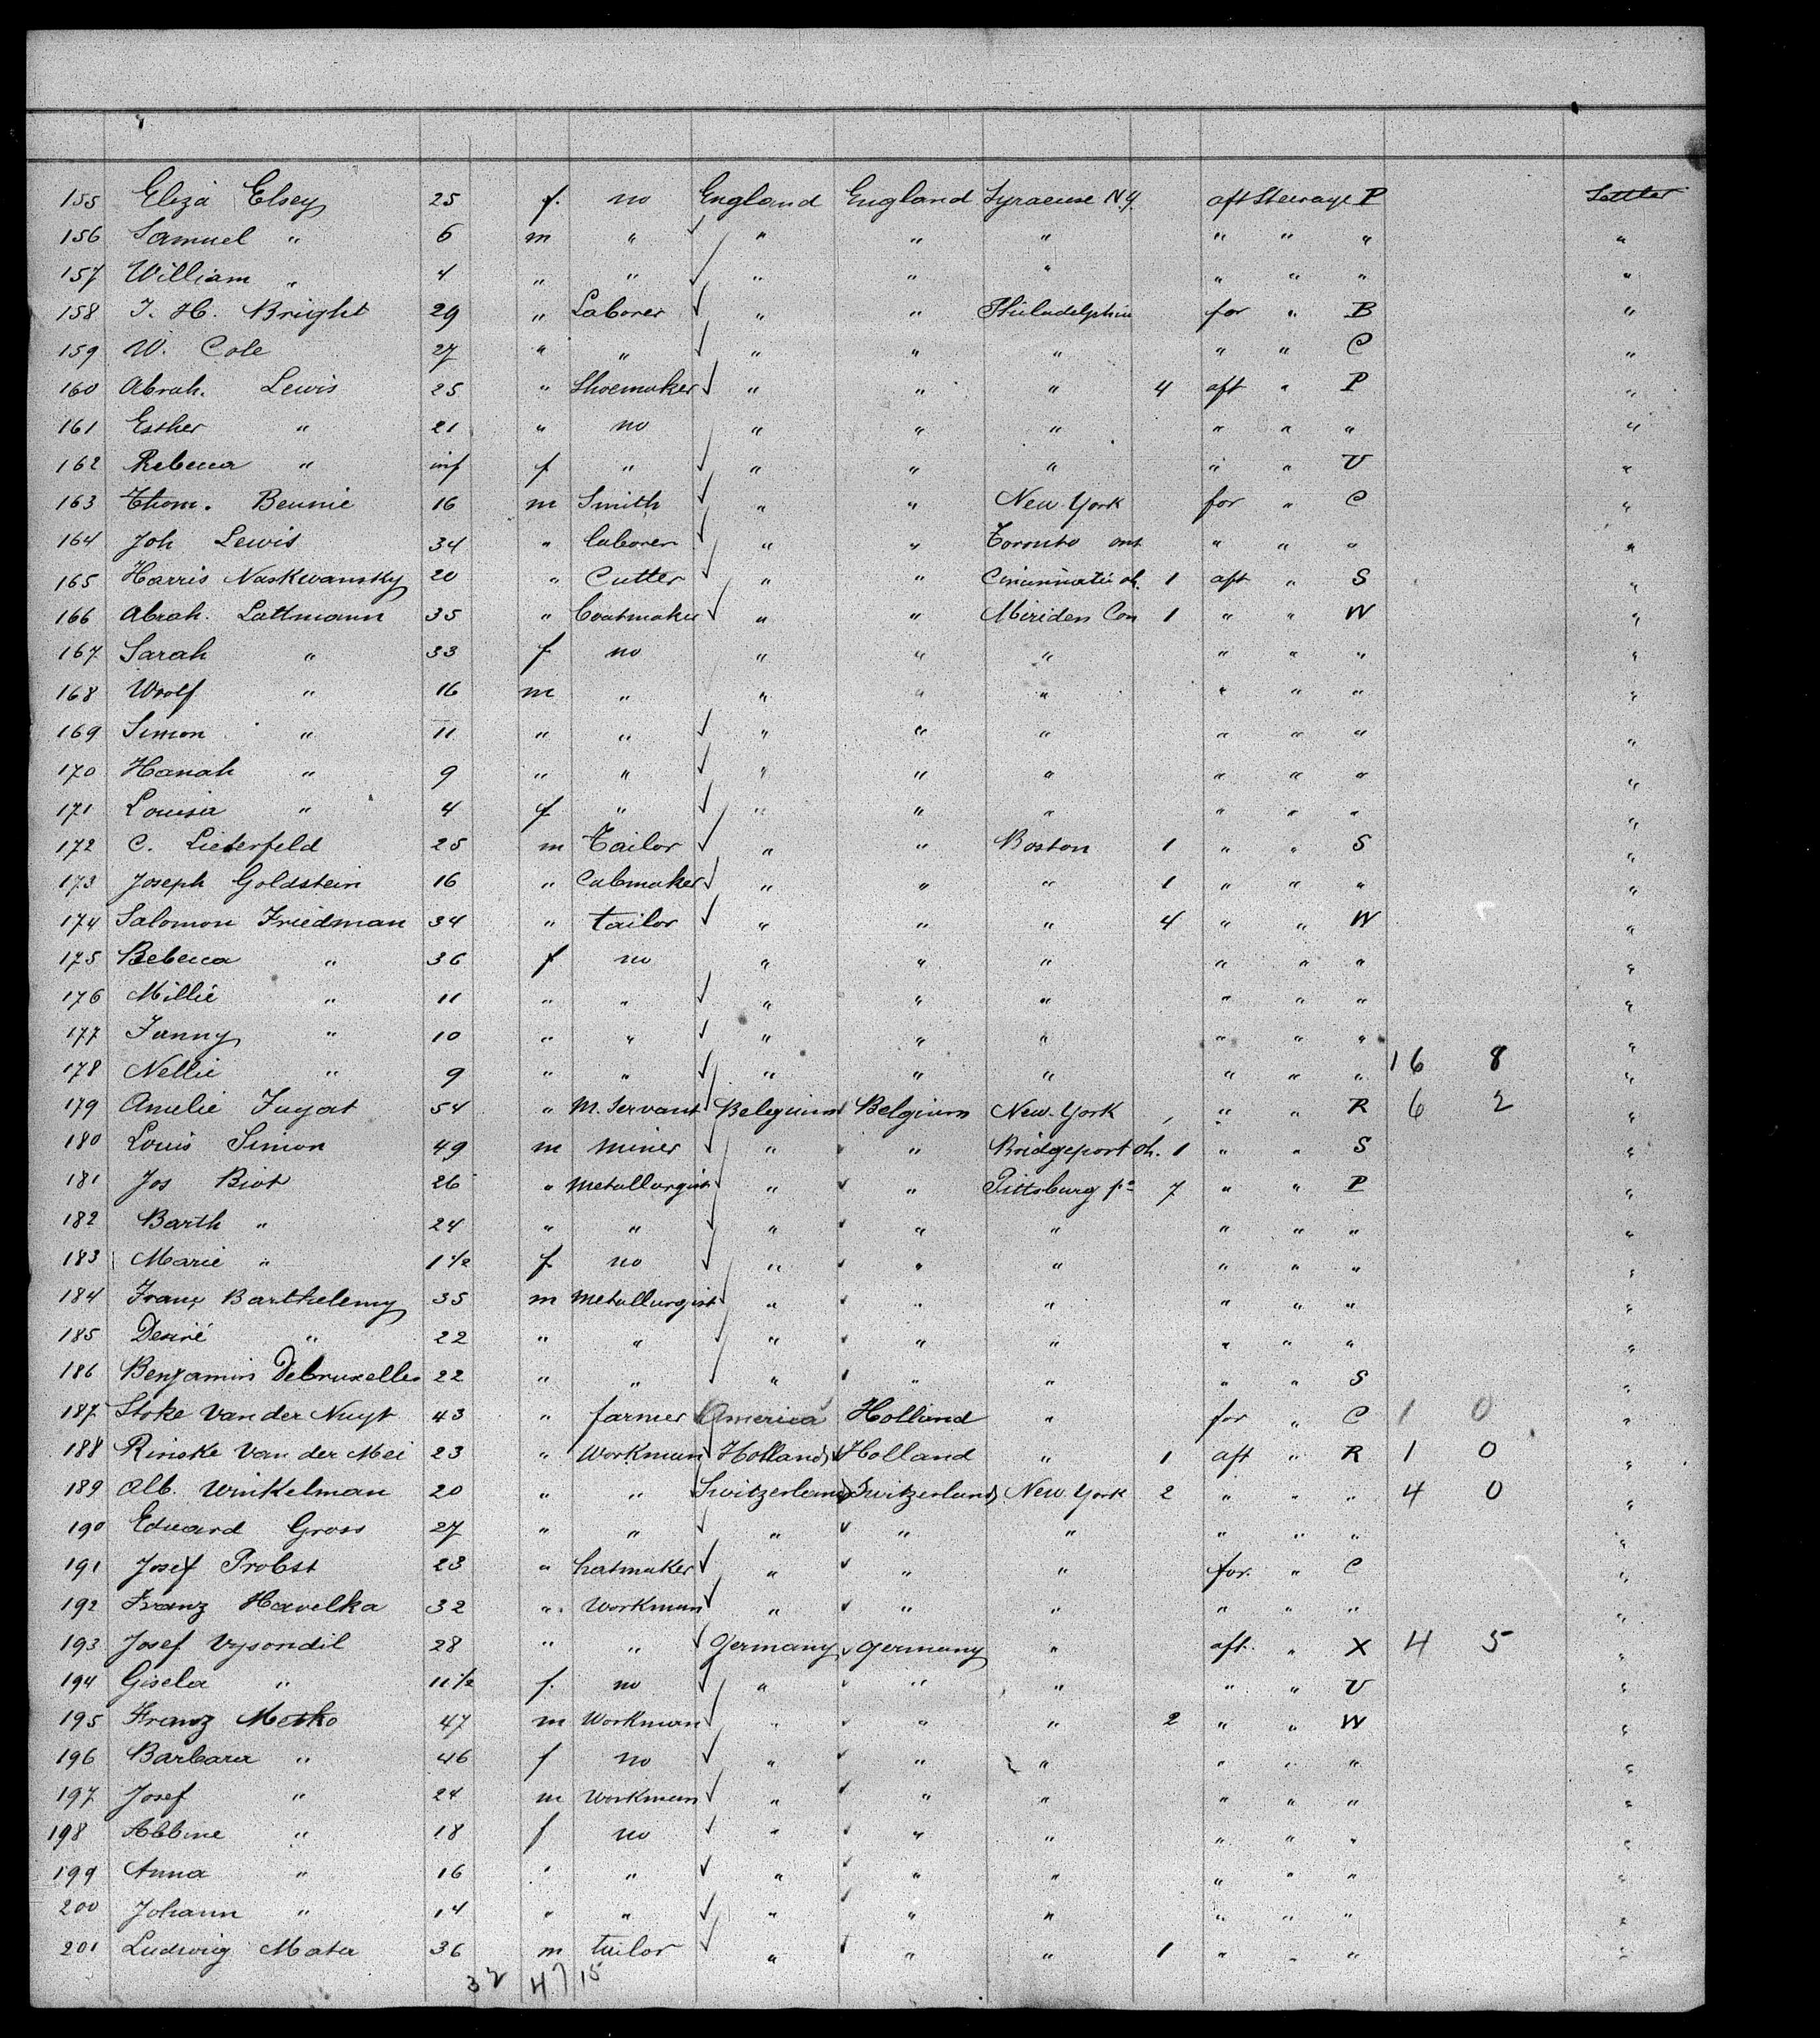 155 Eliza Elsey 25 f. no England England Syracuse N.Y. aft Steerage P Settler
156 Samuel " 6 m " " " " " " " "
157 William " 4 " " " " " " " " "
158 J. H. Bright 29 " Laborer " " Philadelphia for " B "
159 W. Cole 27 " " " " " " " C "
160 Abrah. Lewis 25 " Shoemaker " " " 4 aft " P "
161 Esther " 21 " no " " " " " " "
162 Rebecca " inf f " " " " " " U "
163 Thom. Bennie 16 m Smith " " New York for " C "
164 Joh Lewis 34 " laborer " " Toronto ont " " " "
165 Harris Naskwansky 20 " Cutter " " Cincinnati oh. 1 aft " S "
166 Abrah. Lattmann 35 " Coatmaker " " Miriden Con 1 " " W "
167 Sarah " 33 f no " " " " " " "
168 Woolf " 16 m " " " " " " " "
169 Simon " 11 " " " " " " " " "
170 Hanah " 9 " " " " " " " " "
171 Louisa " 4 f " " " " " " " "
172 C. Lieberfeld 25 m Tailor " " Boston 1 " " S "
173 Joseph Goldstein 16 " Cabmaker " " " 1 " " " "
174 Salomon Friedman 34 " tailor " " " 4 " " W "
175 Rebecca " 36 f no " " " " " " "
176 Millie " 11 " " " " " " " " "
177 Fanny " 10 " " " " " " " " "
178 Nellie " 9 " " " " " " " " 16 8 "
179 Amelie Fuyat 54 " M. Servant Belgium Belgium New-York , " " R 6 2 "
180 Louis Simon 49 m miner " " Bridgeport Oh. 1 " " S "
181 Jos Biot 26 " metallurgist " " Pittsburg pa 7 " " P "
182 Barth " 24 " " " " " " " " "
183 Marie " 1 1/2 f no " " " " " " "
184 Franz Barthelemy 35 m metallurgist " " " " " " "
185 Desiré " 22 " " " " " " " " "
186 Benjamin Debruxelles 22 " " " " " " " S "
187 Stoke Van der Nuyt 43 " farmer America Holland " for " C 1 0 "
188 Rinske Van der Mei 23 " Workman Holland Holland " 1 aft " R 1 0 "
189 Alb. Winkelman 20 " " Switzerland Switzerland New York 2 " " " 4 0 "
190 Eduard Gross 27 " " " " " " " " "
191 Josef Probst 23 " hatmaker " " " for. " C "
192 Franz Havelka 32 " Workman " " " " " " "
193 Josef Vysondil 28 " " Germany Germany " aft " X 4 5 "
194 Gisela " 11 1/2 f. no " " " " " U "
195 Franz Matko 47 m Workman " " " 2 " " W "
196 Barbara " 46 f no " " " " " " "
197 Josef " 24 m Workman " " " " " " "
198 Albine " 18 f no " " " " " " "
199 Anna " 16 " " " " " " " " "
200 Johann " 14 " " " " " " " " "
201 Ludwig Mata 36 m tailor " " " 1 " " " "
32 47 15